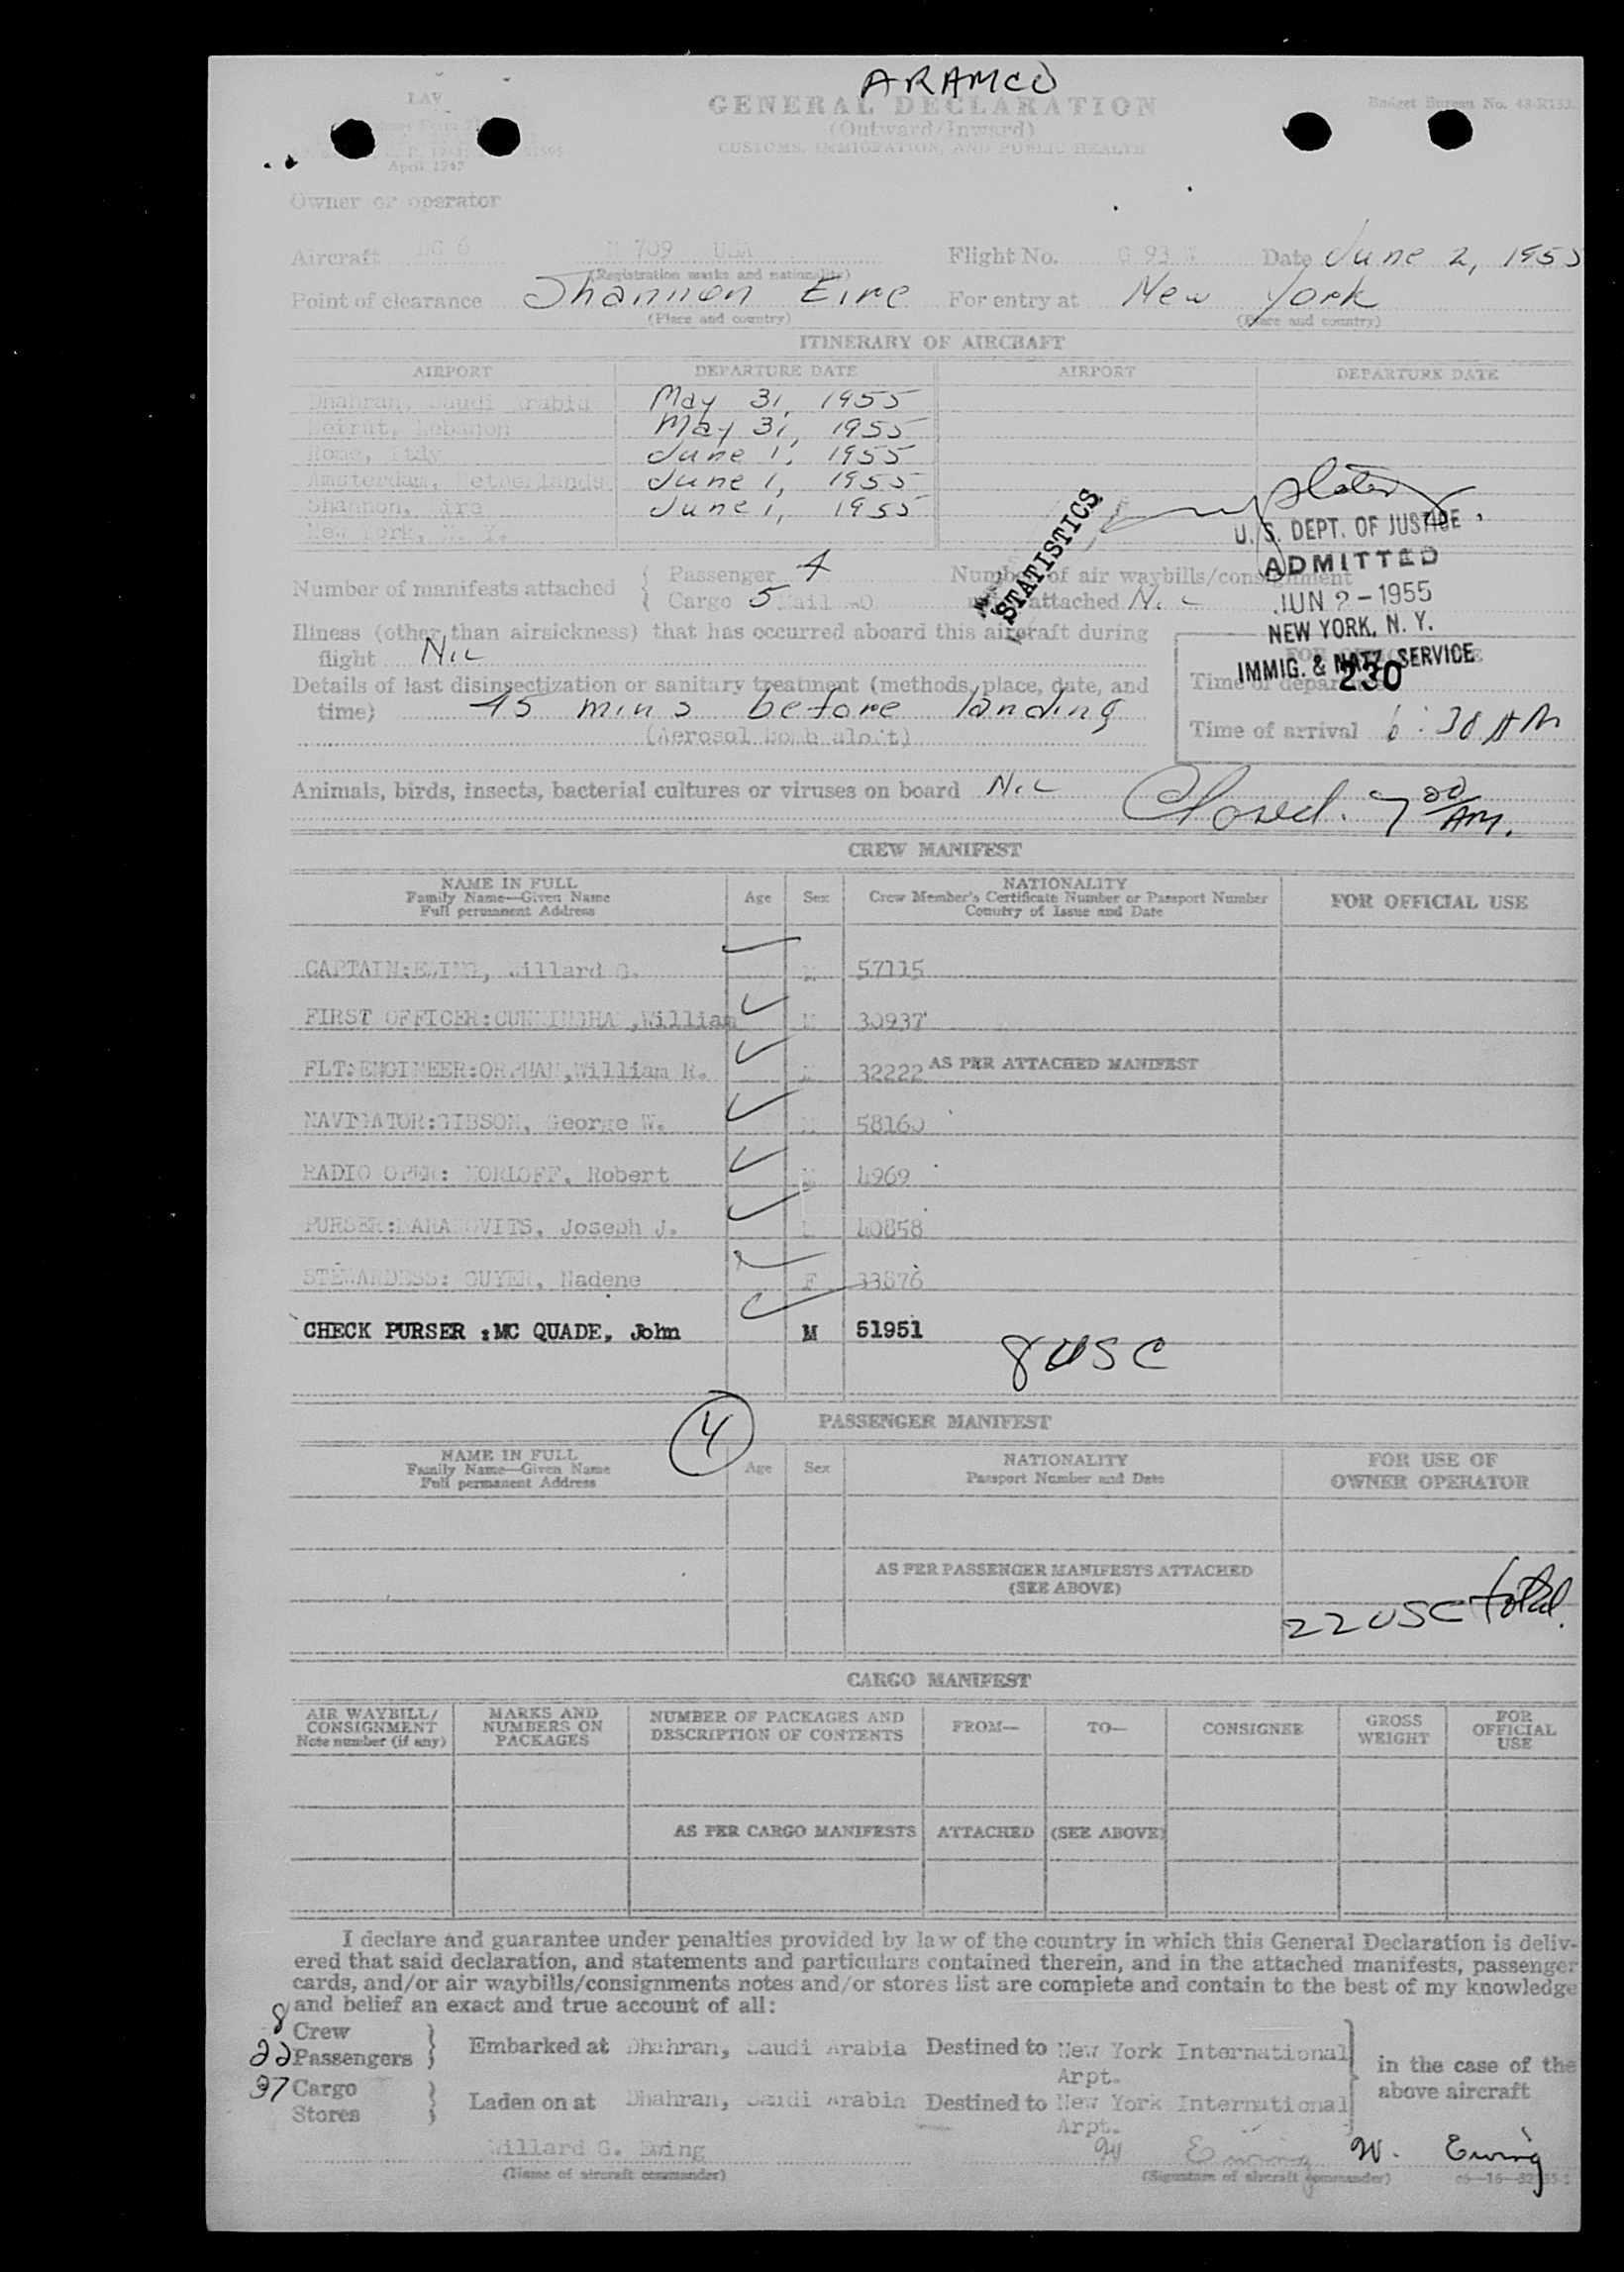 ARAMCO
LAV
GENERAL DECLARATION
Budget Bureau No.
(Outward/Inward)
CUSTOMS, IMMIGRATION, AND PUBLIC HEALTH
April 1947
Owner or operator
Aircraft DC 6 N 709 USA Flight No. G 93 Date June 2, 1955
(Registration marks and nationality)
Point of clearance Shannon Eire For entry at New York
(Place and country) (Place and country)
ITINERARY OF AIRCRAFT
AIRPORT DEPARTURE DATE AIRPORT DEPARTURE DATE
Dhahran, Saudi Arabia May 31, 1955
Beirut, Lebanon May 31, 1955
Rome, Italy June 1, 1955
Amsterdam, Netherlands June 1, 1955
Shannon, Eire June 1, 1955
New York, N. Y.
STATISTICS
U. S. DEPT. OF JUSTICE
ADMITTED
JUN 2 - 1955
NEW YORK, N. Y.
IMMIG. & NATZ. SERVICE
230
Number of manifests attached { Passenger 4 Number of air waybills/consignment
Cargo 5 Mail attached Nil
Illness (other than airsickness) that has occurred aboard this aircraft during
flight Nil
Details of last disinsectization or sanitary treatment (methods, place, date, and
time) 45 mins before landing
(Aerosol bomb aloft)
Time of departure
Time of arrival 6:30 AM
Animals, birds, insects, bacterial cultures or viruses on board Nil
Closed. 7 00 AM.
CREW MANIFEST
NAME IN FULL
Family Name—Given Name
Full permanent Address
Age Sex
NATIONALITY
Crew Member's Certificate Number or Passport Number
Country of Issue and Date
FOR OFFICIAL USE
CAPTAIN:EWING, Willard G. M 57115
FIRST OFFICER:CUNNINGHAM,William M 30937
FLT:ENGINEER:ORPHAN,William R. M 32222 AS PER ATTACHED MANIFEST
NAVIGATOR:GIBSON, George W. M 58160
RADIO OPER: Robert M 4969
PURSER: Joseph J. 40858
STEWARDESS: GUYER, Nadene F 33876
CHECK PURSER :MC QUADE, John M 51951
8 USC
4
PASSENGER MANIFEST
NAME IN FULL
Family Name—Given Name
Full permanent Address
Age Sex
NATIONALITY
Passport Number and Date
FOR USE OF
OWNER OPERATOR
AS PER PASSENGER MANIFESTS ATTACHED
(SEE ABOVE)
22 USC total.
CARGO MANIFEST
AIR WAYBILL/
CONSIGNMENT
Note number (if any)
MARKS AND
NUMBERS ON
PACKAGES
NUMBER OF PACKAGES AND
DESCRIPTION OF CONTENTS
FROM— TO— CONSIGNEE
GROSS
WEIGHT
FOR
OFFICIAL
USE
AS PER CARGO MANIFESTS ATTACHED (SEE ABOVE)
I declare and guarantee under penalties provided by law of the country in which this General Declaration is deliv-
ered that said declaration, and statements and particulars contained therein, and in the attached manifests, passenger
cards, and/or air waybills/consignments notes and/or stores list are complete and contain to the best of my knowledge
and belief an exact and true account of all:
8 Crew
22 Passengers } Embarked at Dhahran, Saudi Arabia Destined to New York International
Arpt.
in the case of the
above aircraft
37 Cargo
Stores } Laden on at Dhahran, Saudi Arabia Destined to New York International
Arpt.
Willard G. Ewing W Ewing W. Ewing
(Name of aircraft commander) (Signature of aircraft commander)